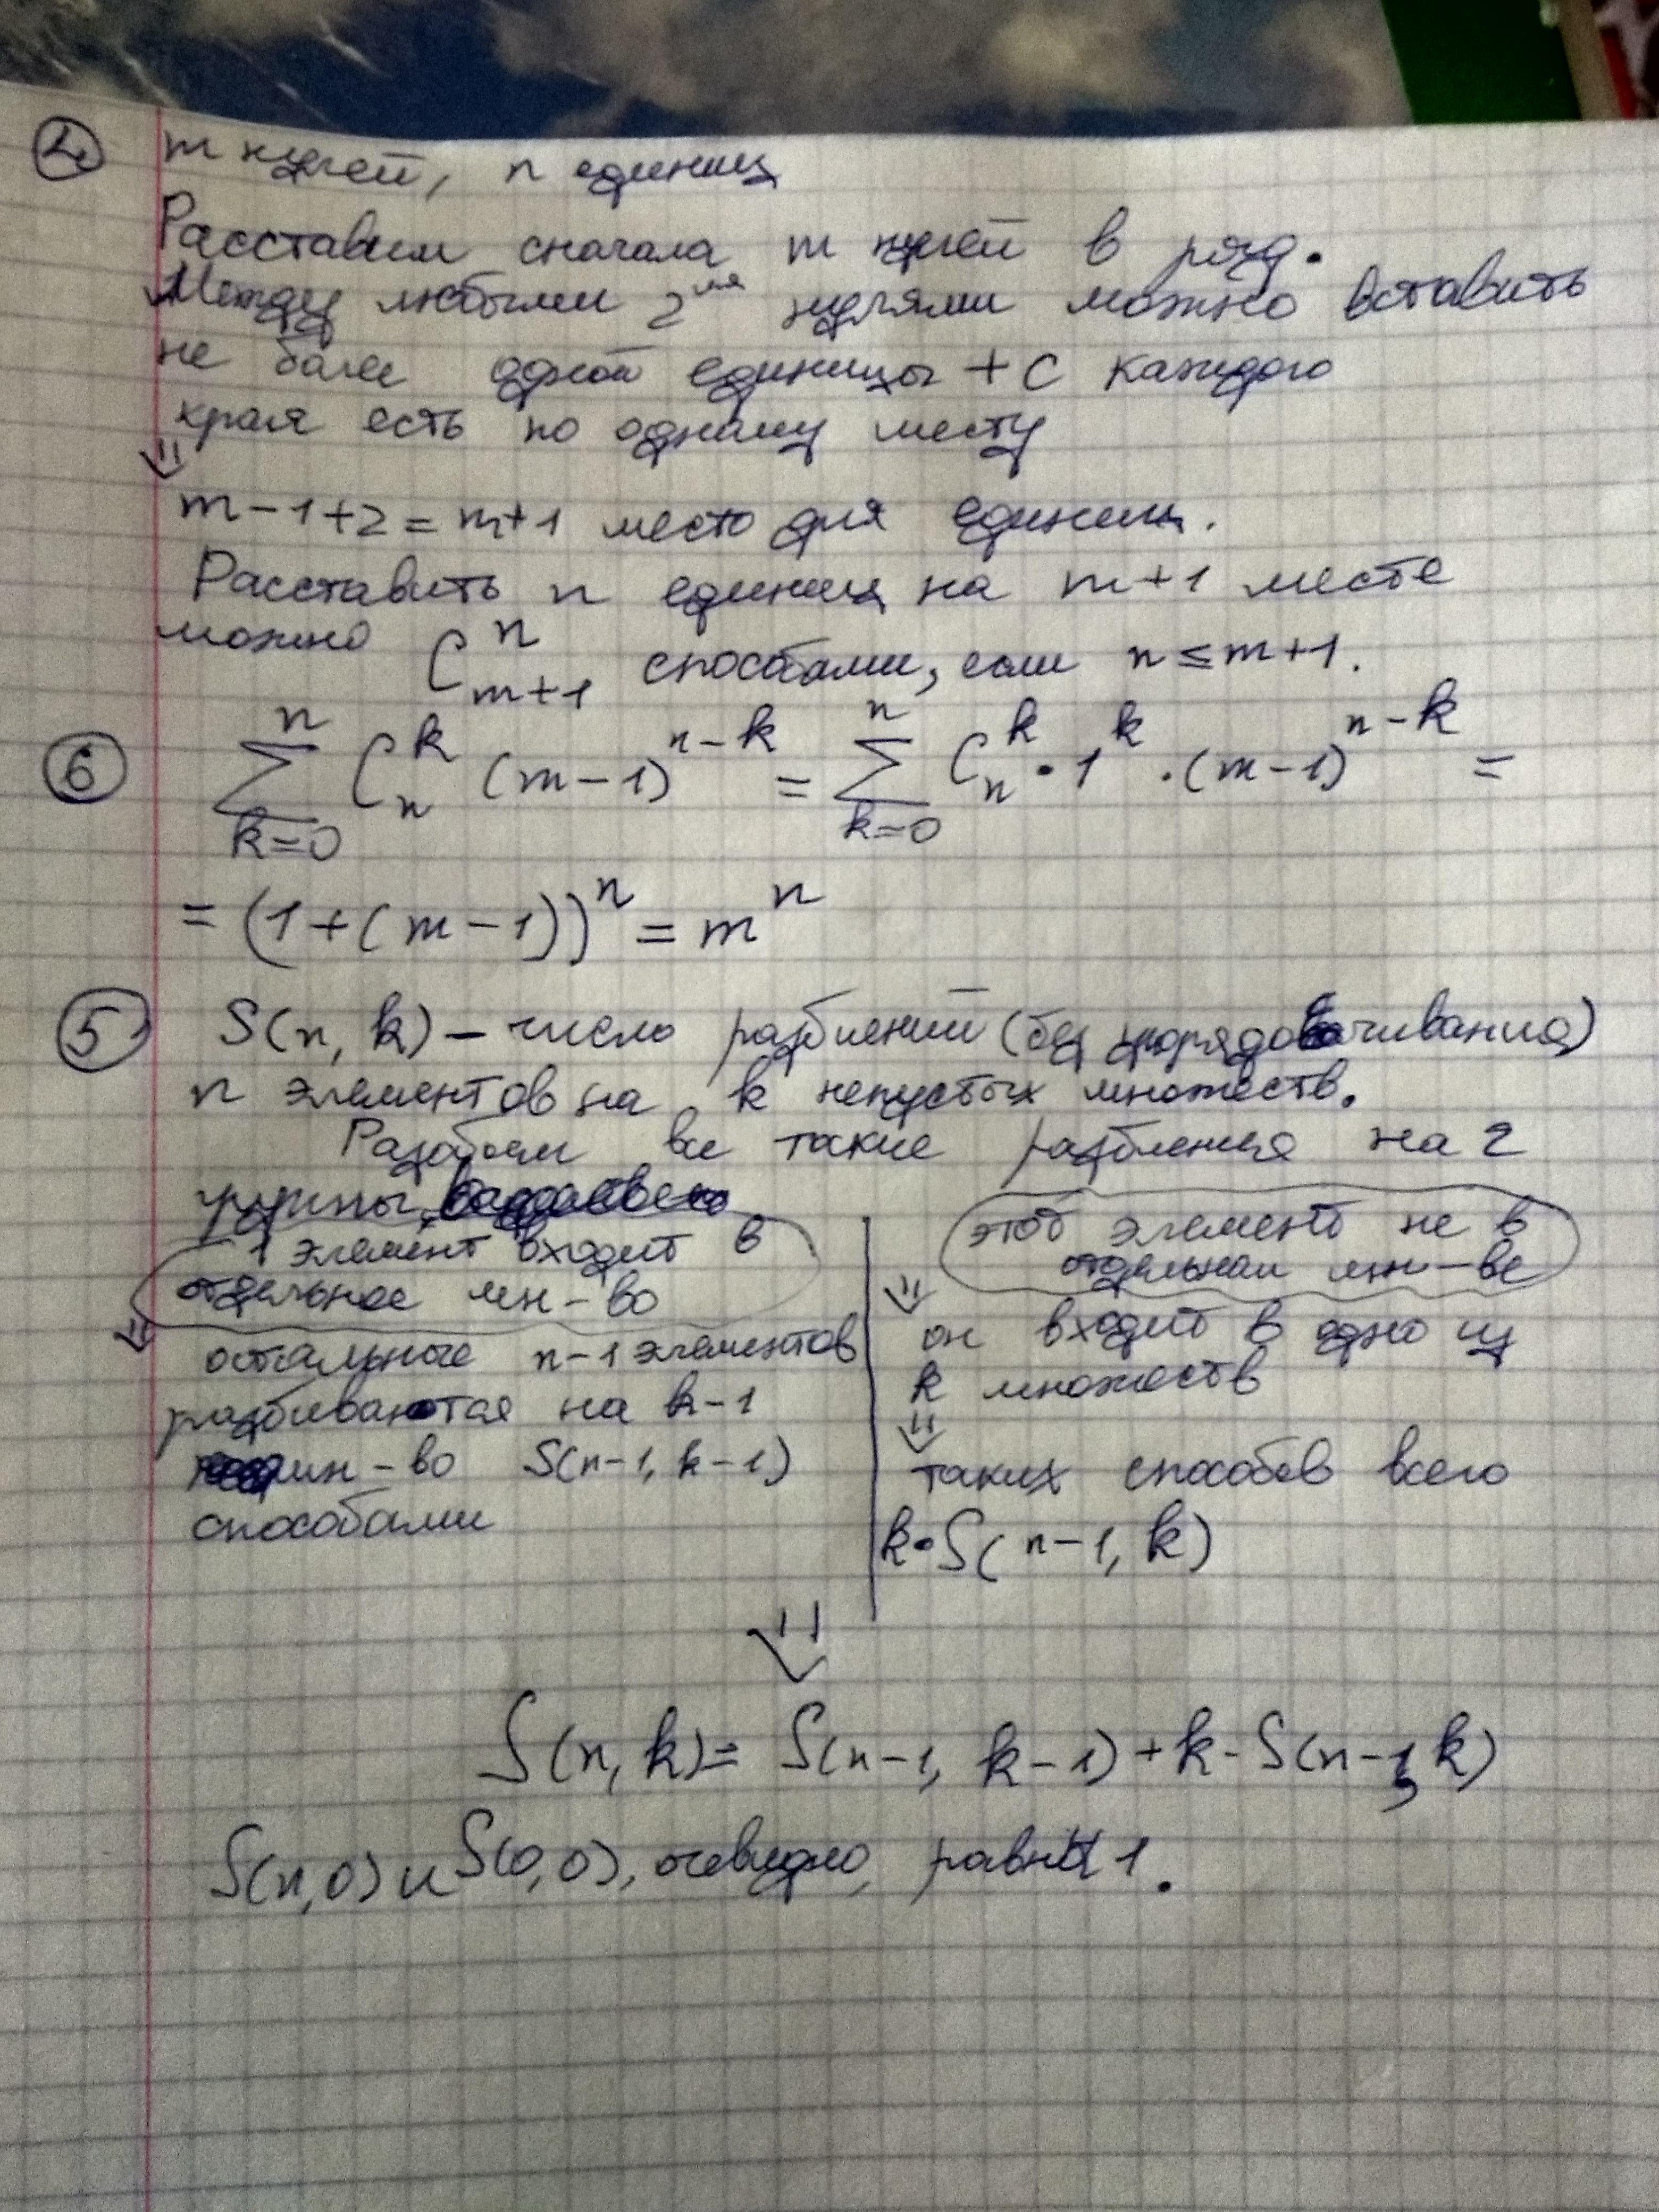 ④ m нулей, n единиц
Расставим сначала m нулей в ряд.
Между любыми 2мя нулями можно вставить
не более одной единицы + с каждого
края есть по одному месту
⇓
m-1+2=m+1 место для единиц.
Расставить n единиц на m+1 месте
можно C_{m+1}^{n} способами, если n≤m+1.
⑥ \sum_{k=0}^{n} C_n^k (m-1)^{n-k} = \sum_{k=0}^{n} C_n^k · 1^k · (m-1)^{n-k} =
= (1+(m-1))^n = m^n
⑤ S(n, k) – число разбиений (без упорядовачивания)
n элементов на k непустых множеств.
Разобьем все такие разбиения на 2
группы,
1 элемент входит в
отдельное мн-во
⇓
остальные n-1 элементов
разбиваются на k-1
мн-во S(n-1, k-1)
способами
этот элемент не в
отдельном мн-ве
⇓
он входит в одно из
k множеств
⇓
таких способов всего
k·S(n-1, k)
⇓
S(n, k)= S(n-1, k-1)+k·S(n-1, k)
S(n,0) и S(0,0), очевидно, равны 1.